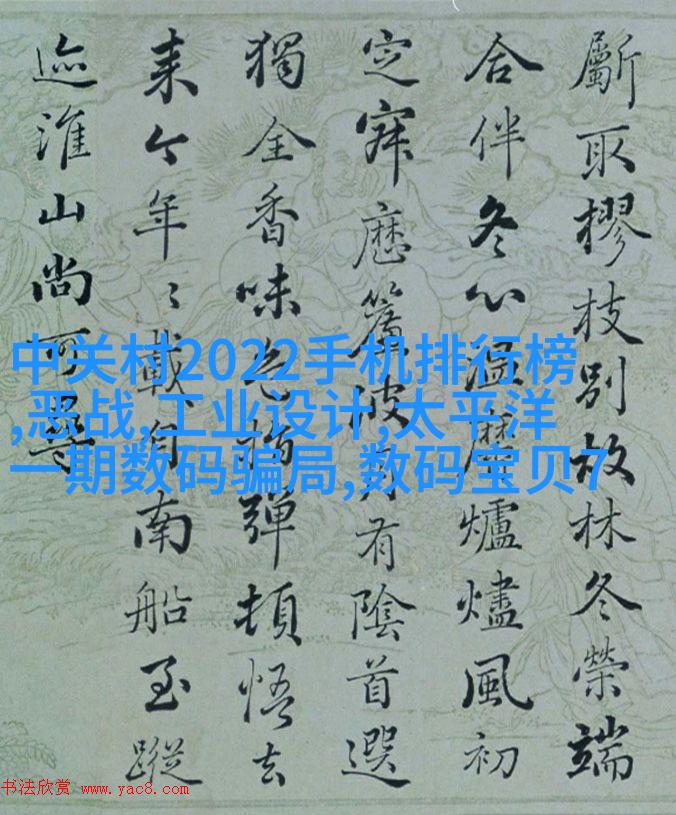 斸取樛枝别故林冬榮端
合伴冬心温爐燼風初
定寐有陰首選
獨全香味色彈頓悟去
来今年〻載自南船至蹤
迹淮山尚可尋
中关村2022手机排行榜
,恶战,工业设计,太平洋
一期数码骗局,数码宝贝7
书法欣赏 www.yac8.com